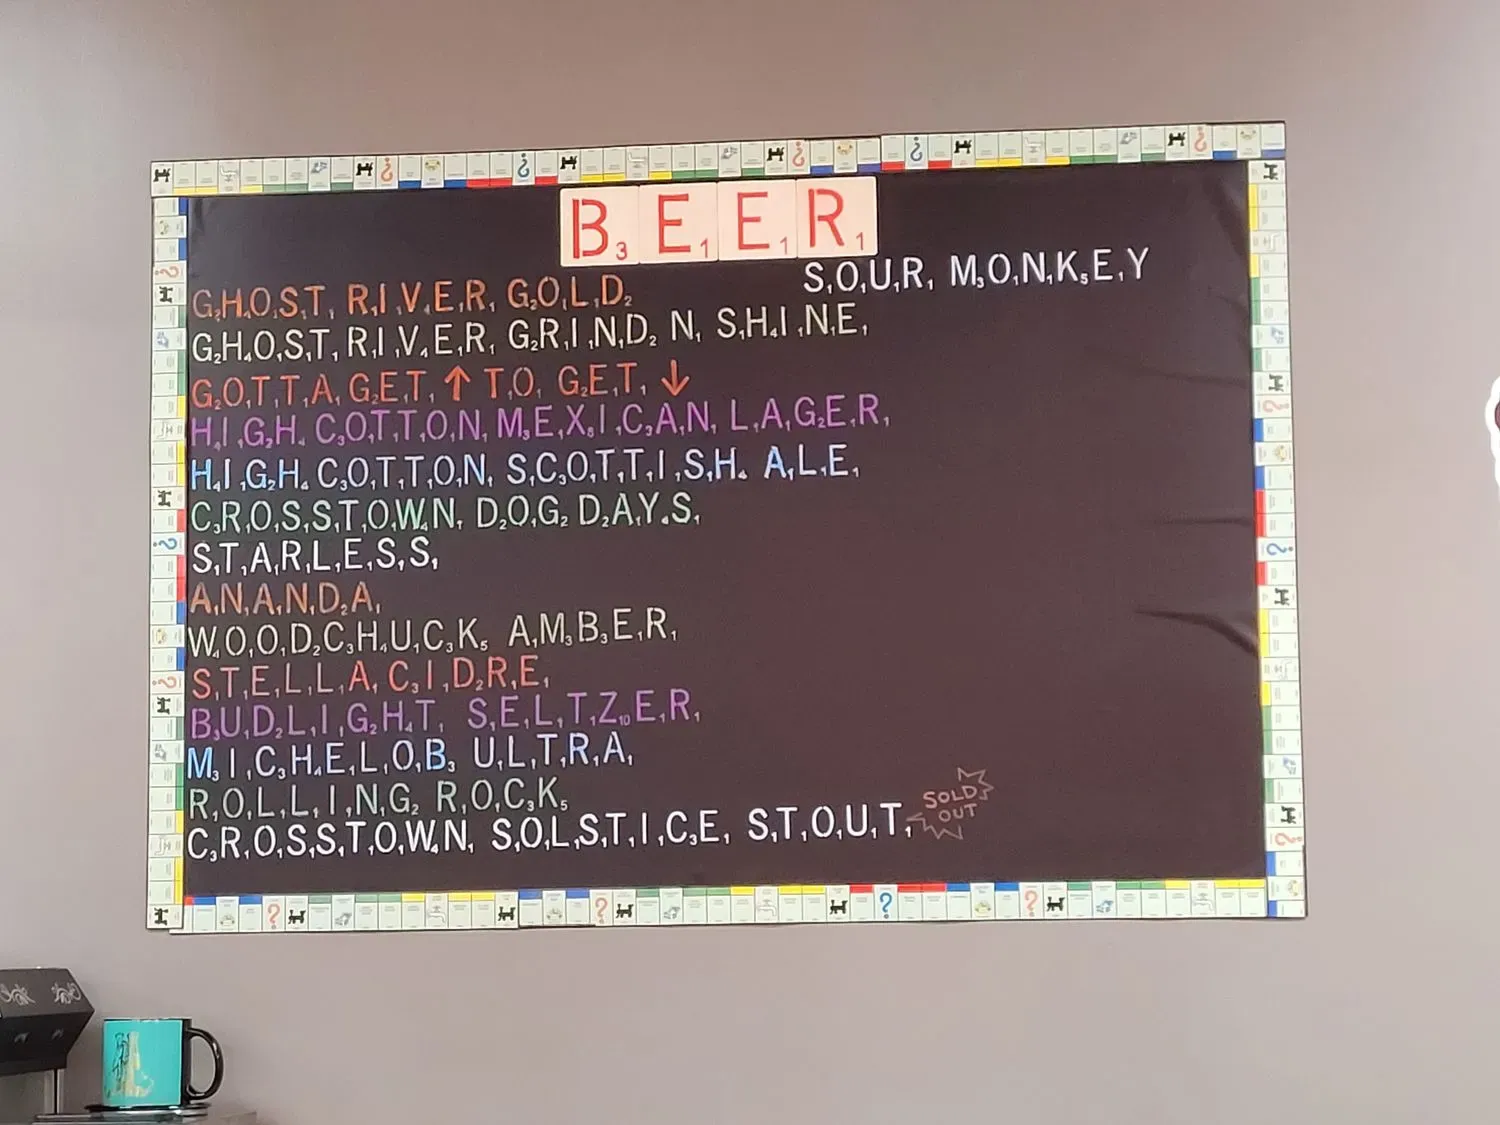 BEER
GHOST RIVER GOLD
SOUR MONKEY
GHOST RIVER GRIND N SHINE
GOTTA GET ↑ TO GET ↓
HIGH COTTON MEXICAN LAGER
HIGH COTTON SCOTTISH ALE
CROSSTOWN DOG DAYS
STARLESS
ANANDA
WOODCHUCK AMBER
STELLA CIDRE
BUDLIGHT SELTZER
MICHELOB ULTRA
ROLLING ROCK
CROSSTOWN SOLSTICE STOUT
SOLD
OUT